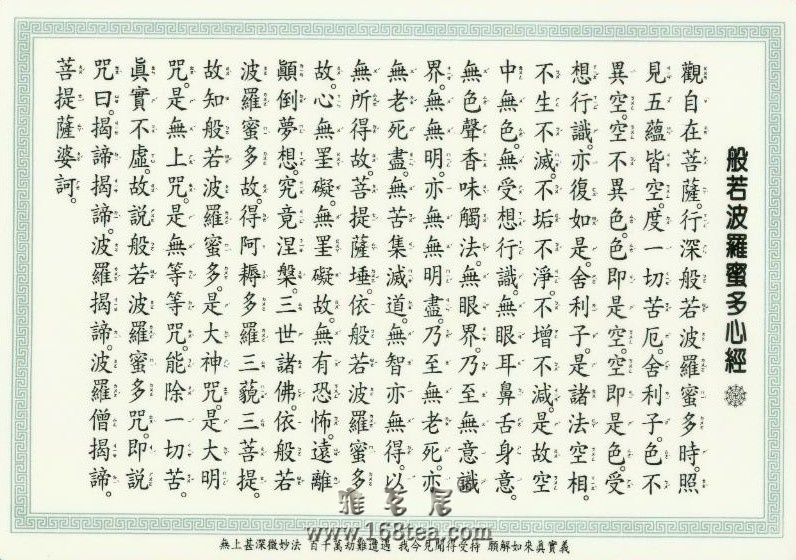 般若波羅蜜多心經
觀自在菩薩。行深般若波羅蜜多時。照
見五蘊皆空。度一切苦厄。舍利子。色不
異空。空不異色。色即是空。空即是色。受
想行識。亦復如是。舍利子。是諸法空相。
不生不滅。不垢不淨。不增不減。是故空
中無色。無受想行識。無眼耳鼻舌身意。
無色聲香味觸法。無眼界。乃至無意識
界。無無明。亦無無明盡。乃至無老死。亦
無老死盡。無苦集滅道。無智亦無得。以
無所得故。菩提薩埵。依般若波羅蜜多
故。心無罣礙。無罣礙故。無有恐怖。遠離
顛倒夢想。究竟涅槃。三世諸佛。依般若
波羅蜜多故。得阿耨多羅三藐三菩提。
故知般若波羅蜜多。是大神咒。是大明
咒。是無上咒。是無等等咒。能除一切苦。
眞實不虛。故說般若波羅蜜多咒。即說
咒曰。揭諦揭諦。波羅揭諦。波羅僧揭諦。
菩提薩婆訶。
雅茗居
www.168tea.com
無上甚深微妙法 百千萬劫難遭遇 我今見聞得受持 願解如來眞實義